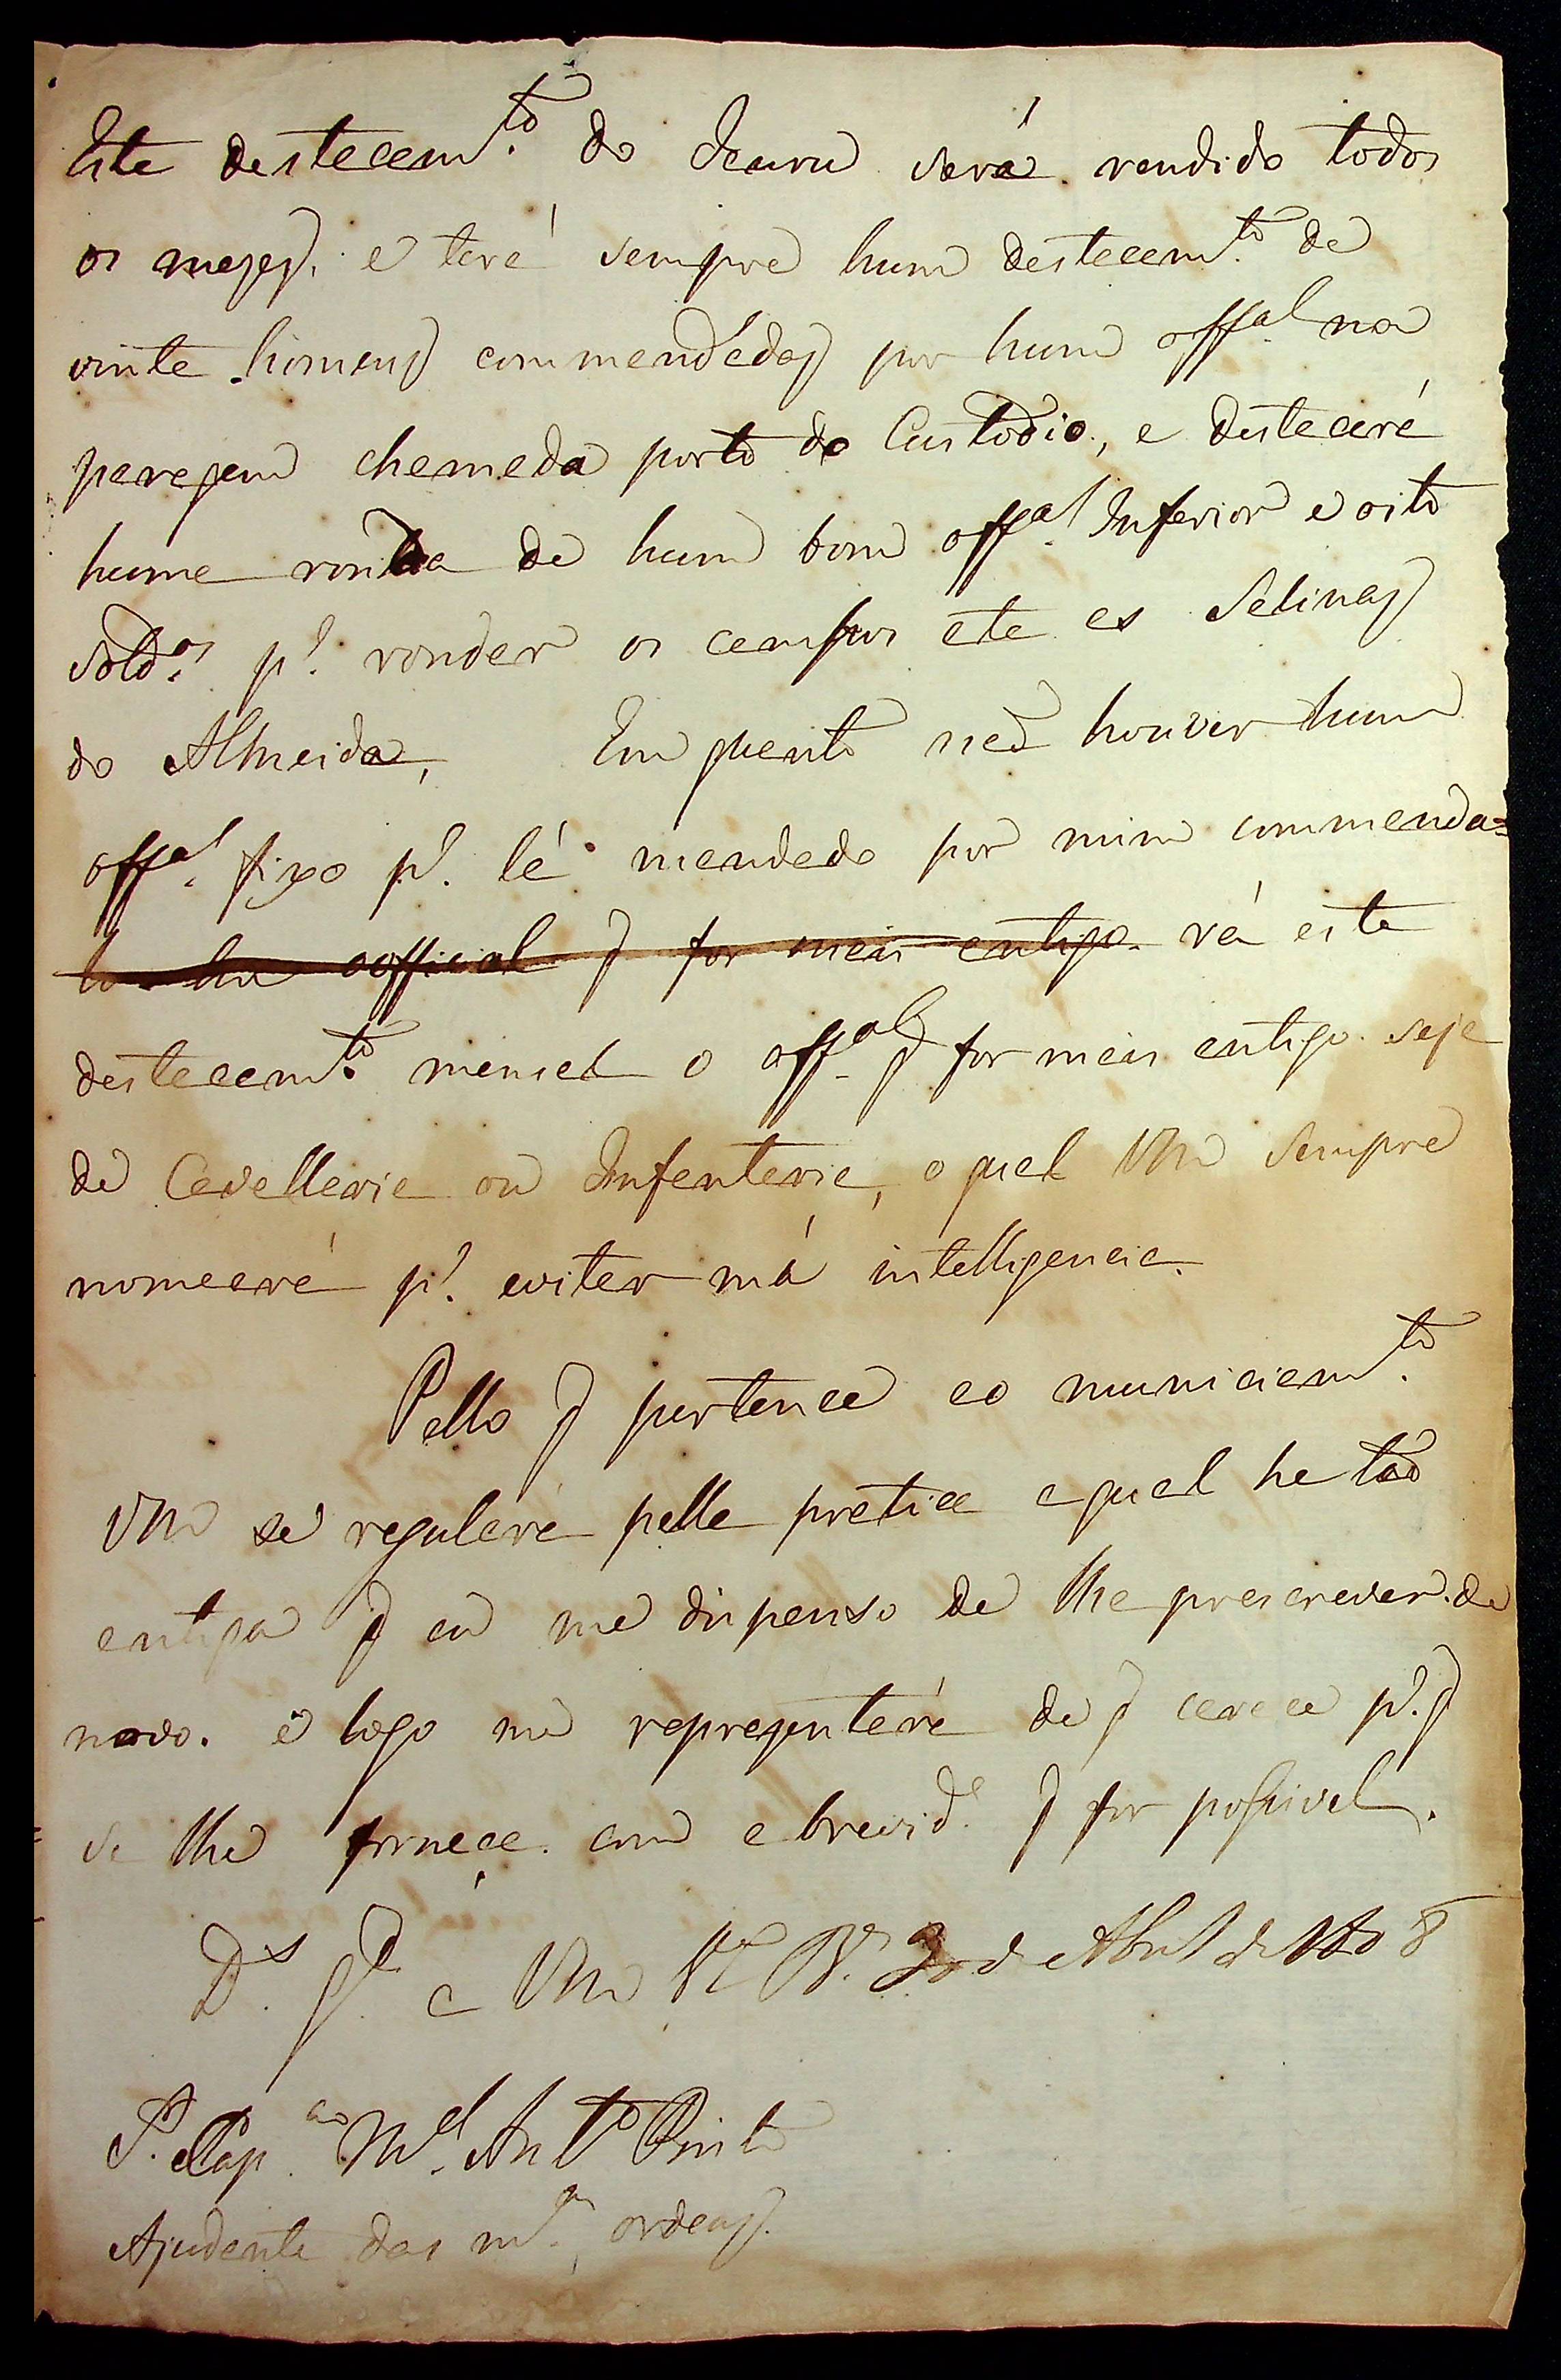 Este destacam.to do Jauru será rendido todos
os mezes, e terá sempre hum destacam.to de
vinte homens commandádos por hum off.al na
paragem chamada porto do Custodio, e destacará
huma ronda de hum bom off.al Inferior e oito
sold.os p.a rondar os campos ate as Salinas
do Almeida, Em quanto não houver hum
off.al fixo p.a lá mandado por mim commenda=
official q for mais antigo. vá este
destacam.to mensal o off.al q for mais antigo seja
de Cavallaria ou Infantaria, o qual Vm sempre
nomeará p.a evitar má intelligencia.
Pello q pertence ao municiam.to
Vm se regulará pella pratica a qual he tão
antiga q eu me dispenso de lhe prescrever de
novo. e logo me reprezentará de q carece p.a q
se lhe forneça com a brevid.e q for possivel.
D.s g.e a Vm V.a B.a 30 de Abril de 1808
S.r Cap.am M.el Ant.o Pinto
Ajudante das m.as ordens.